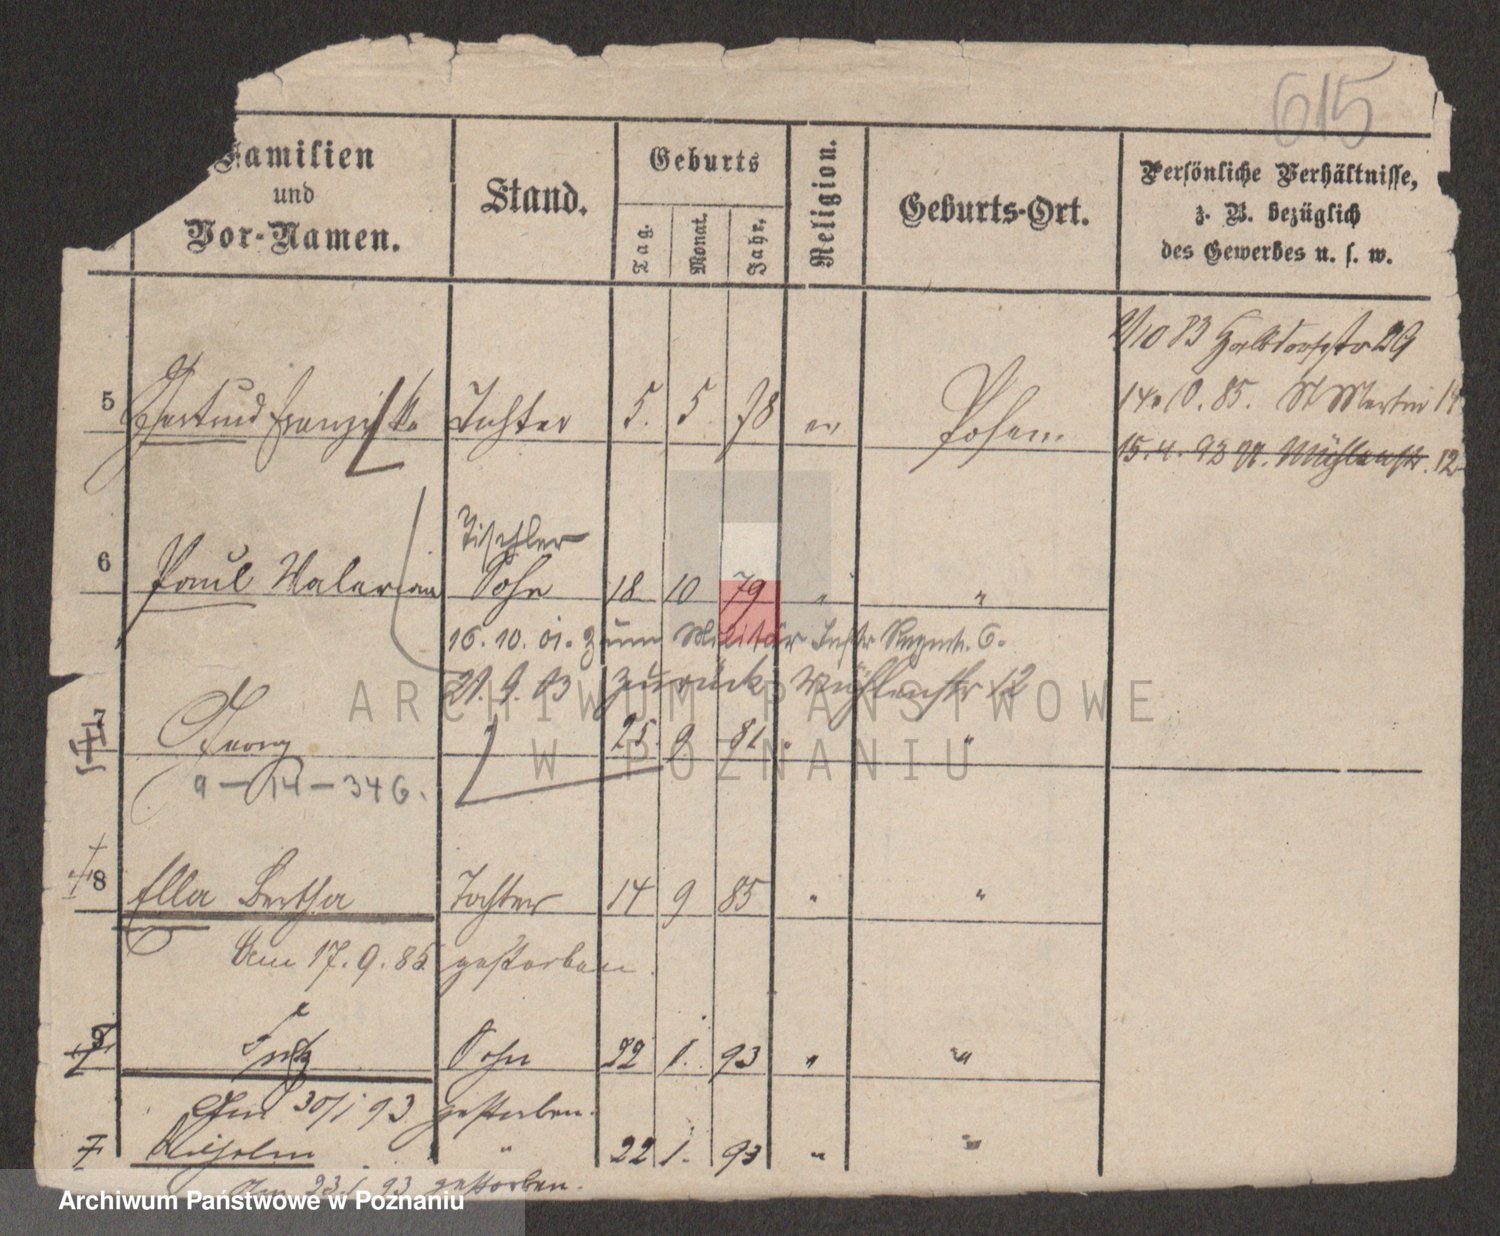 615
Familien
und
Vor-Namen.
Stand.
Geburts
Tag.
Monat.
Jahr.
Religion.
Geburts-Ort.
Persönliche Verhältnisse,
z. B. bezüglich
des Gewerbes u. s. w.
2/10 83 Halbdorfstr 29
14. 10. 85. St Martin 14
15. 4. 93 Mühlenstr. 12
5 Gertrud Franziska Tochter 5. 5. 78 ev Posen.
Tischler
6 Paul Valerian Sohn 18 10 79 " "
16. 10. 01. zum Militär Inftr Regmt. 6.
21. 9. 03 zurück Mühlenstr 12
7 Georg 25. 9 81. "
9 – 14 – 346.
8 Ella Bertha Tochter 14 9 85 " "
Am 17. 9. 85 gestorben
9 Fritz Sohn 22 1. 93 " "
Am 30/1 93 gestorben.
Wilhelm " 22 1. 93 " "
Am 23/1 93 gestorben.
ARCHIWUM PAŃSTWOWE
W POZNANIU
Archiwum Państwowe w Poznaniu